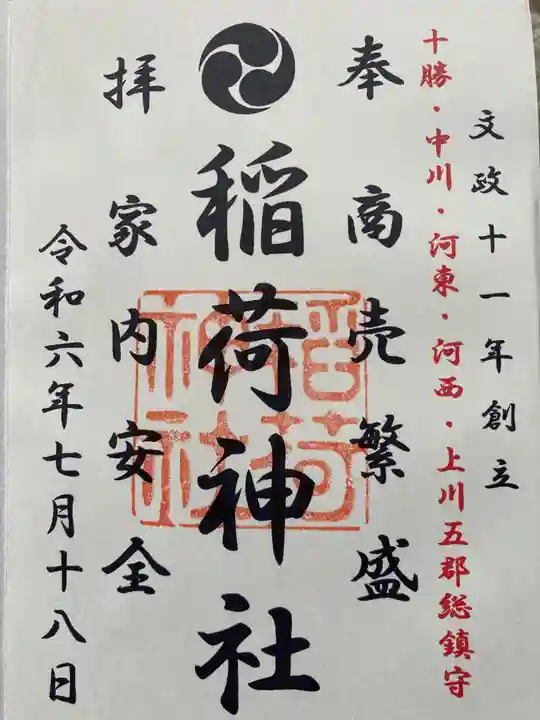 文政十一年創立
十勝・中川・河東・河西・上川五郡総鎮守
奉商売繁盛
稲荷神社
稲荷神社
拝家内安全
令和六年七月十八日